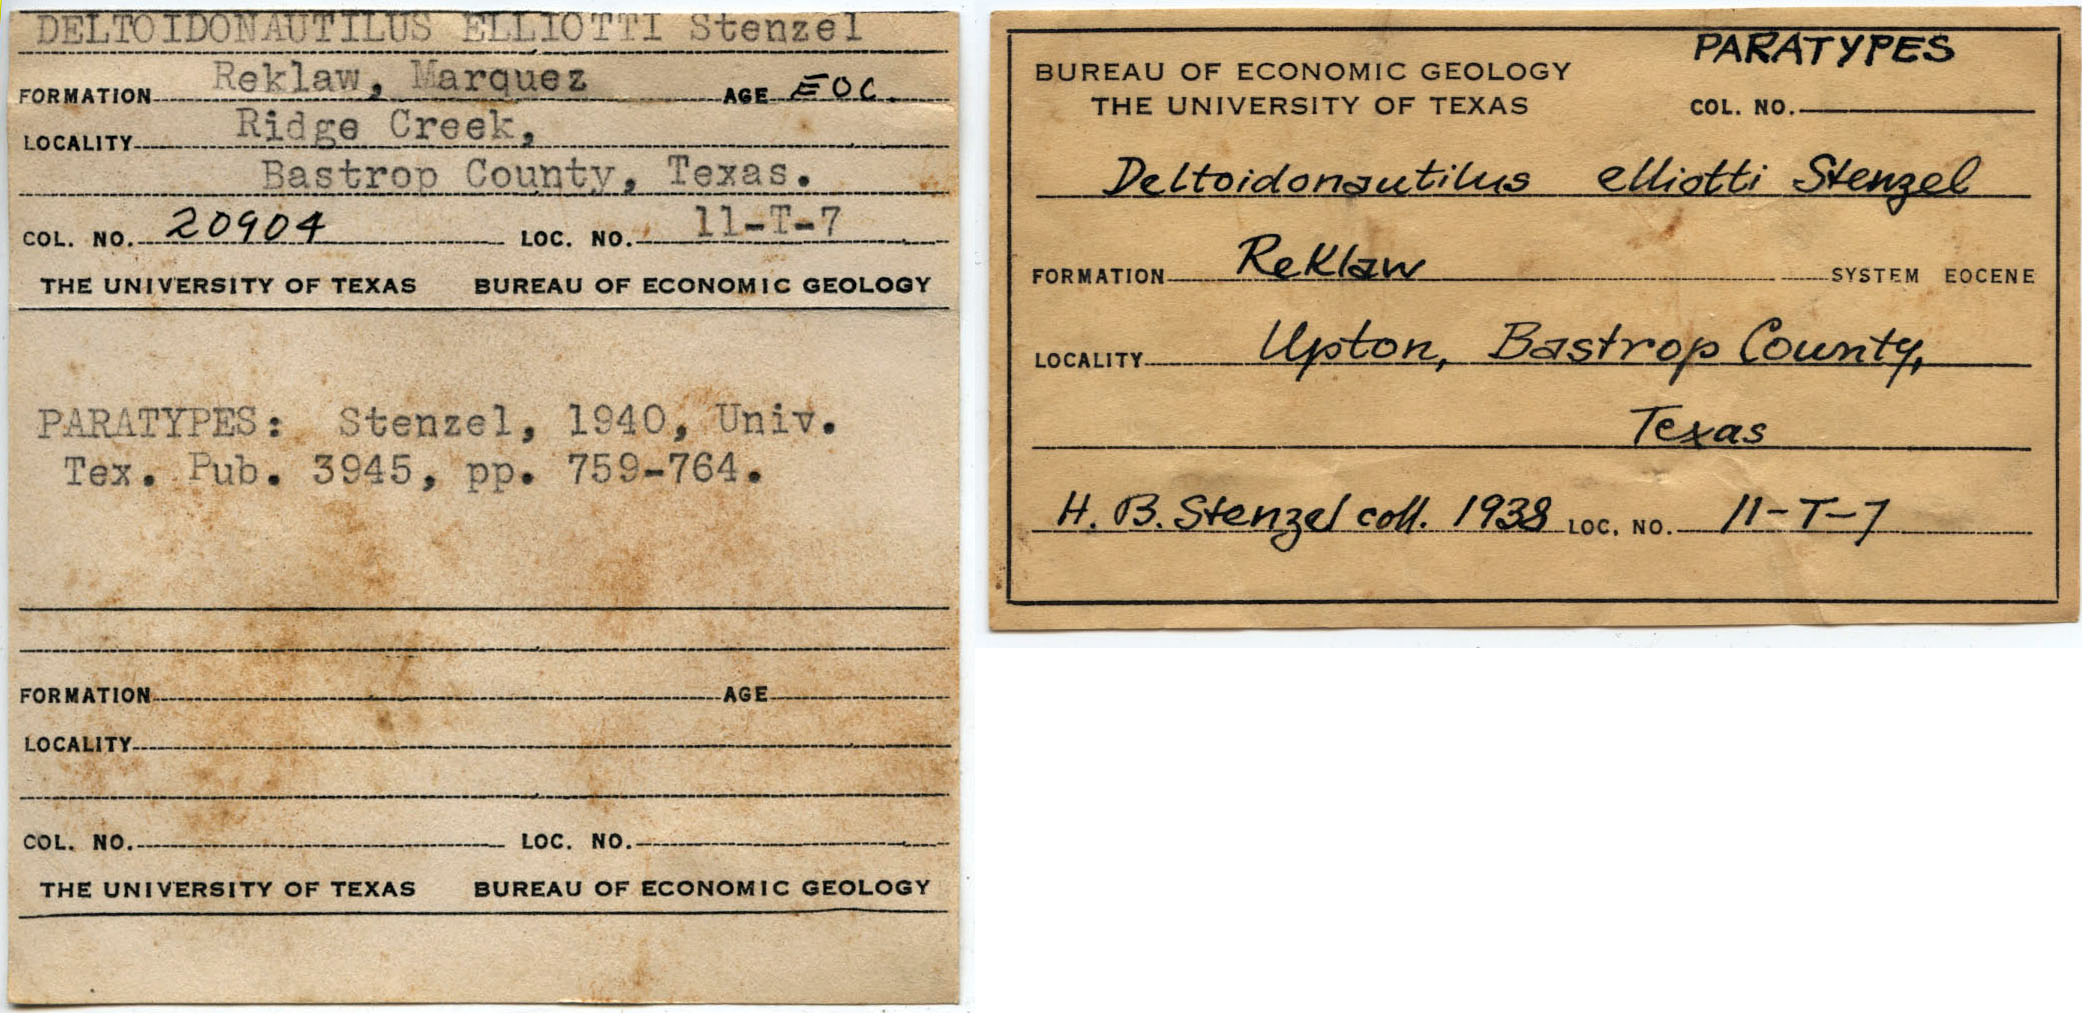 DELTOIDONAUTILUS ELLIOTTI Stenzel
FORMATION Reklaw, Marquez AGE EOC.
LOCALITY Ridge Creek,
Bastrop County, Texas.
COL. NO. 20904 LOC. NO. 11-T-7
THE UNIVERSITY OF TEXAS BUREAU OF ECONOMIC GEOLOGY
PARATYPES: Stenzel, 1940, Univ.
Tex. Pub. 3945, pp. 759-764.
FORMATION AGE
LOCALITY
COL. NO. LOC. NO.
THE UNIVERSITY OF TEXAS BUREAU OF ECONOMIC GEOLOGY
PARATYPES
BUREAU OF ECONOMIC GEOLOGY
THE UNIVERSITY OF TEXAS COL. NO.
Deltoidonautilus elliotti Stenzel
FORMATION Reklaw SYSTEM EOCENE
LOCALITY Upton, Bastrop County,
Texas
H. B. Stenzel coll. 1938 LOC. NO. 11-T-7